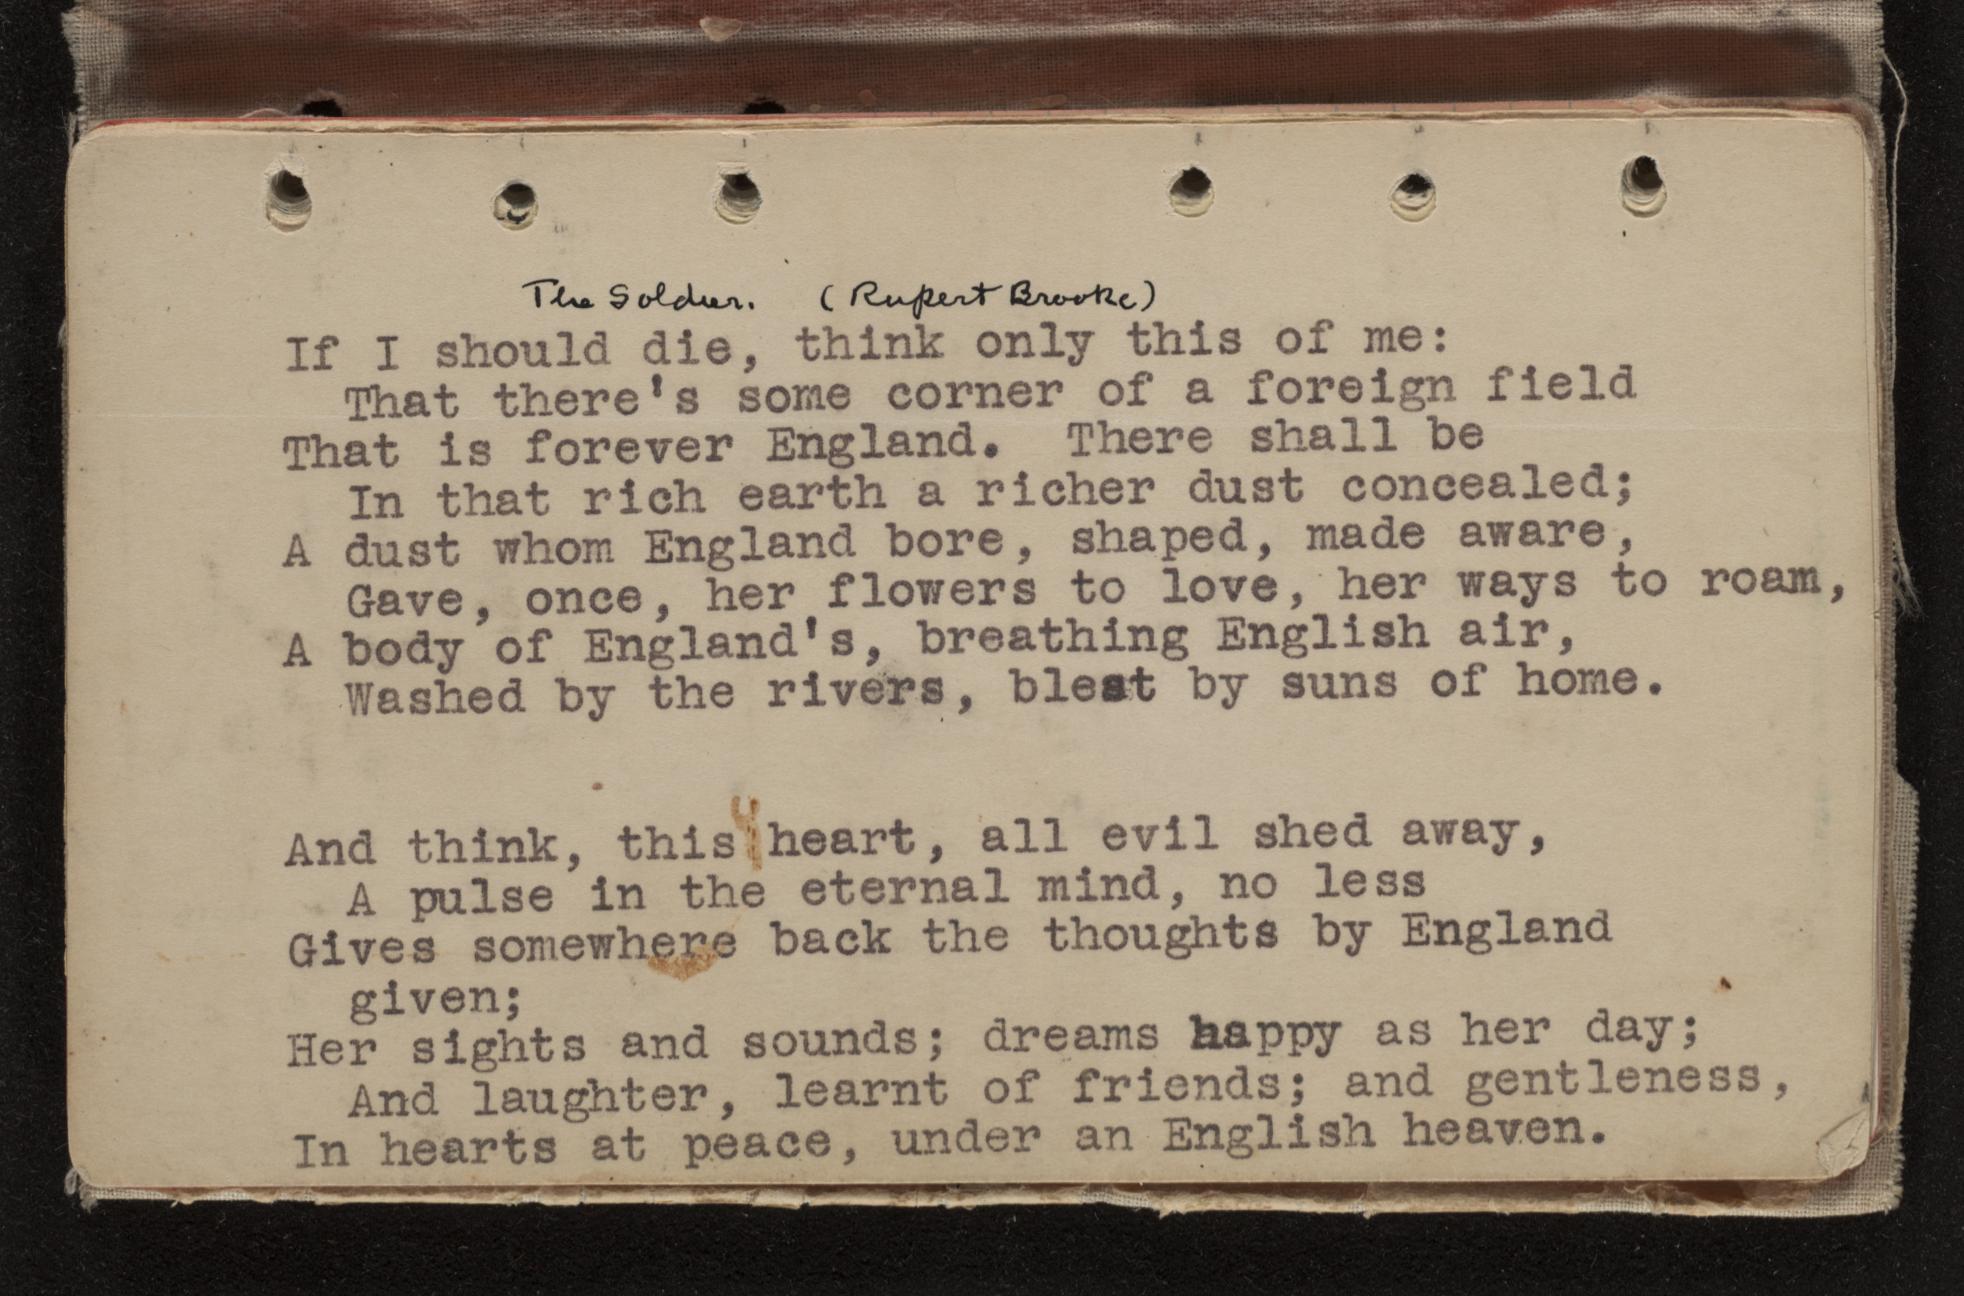 The Soldier. (Rupert Brooke)
If I should die, think only this of me:
That there's some corner of a foreign field
That is forever England. There shall be
In that rich earth a richer dust concealed;
A dust whom England bore, shaped, made aware,
Gave, once, her flowers to love, her ways to roam,
A body of England's, breathing English air,
Washed by the rivers, blest by suns of home.
And think, this heart, all evil shed away,
A pulse in the eternal mind, no less
Gives somewhere back the thoughts by England
given;
Her sights and sounds; dreams happy as her day;
And laughter, learnt of friends; and gentleness,
In hearts at peace, under an English heaven.